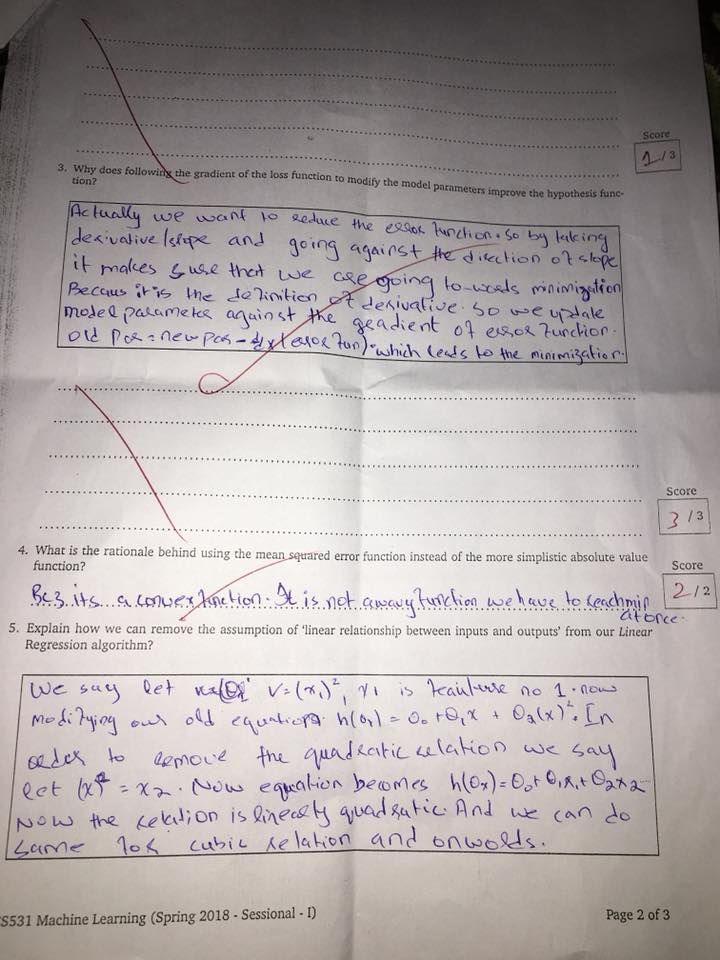 Score
1/3
3. Why does following the gradient of the loss function to modify the model parameters improve the hypothesis func-
tion?
Actually we want to reduce the error function. So by taking
derivative/slope and going against the direction of slope
it makes sure that we are going to-words minimization
Becaus it is the definition of derivative. so we update
model parameter against the geadient of error function.
old Par = new par - d/dx (error fun). which leads to the minimization.
Score
3/3
4. What is the rationale behind using the mean squared error function instead of the more simplistic absolute value
function?
Score
2/2
Bcz its a convex function. It is not a wavy function we have to reach min
at once.
5. Explain how we can remove the assumption of 'linear relationship between inputs and outputs' from our Linear
Regression algorithm?
We say let V=(x₁)², x₁ is feauture no 1. now
modifying our old equation h(θ₁) = θ₀ + θ₁x + θ₂(x)². In
order to remove the quadratic relation we say
let (x)² = x₂. Now equation becomes h(θx) = θ₀ + θ₁x₁ + θ₂x₂
Now the relation is linearly quadratic. And we can do
same for cubic relation and onwords.
S531 Machine Learning (Spring 2018 - Sessional - I)
Page 2 of 3